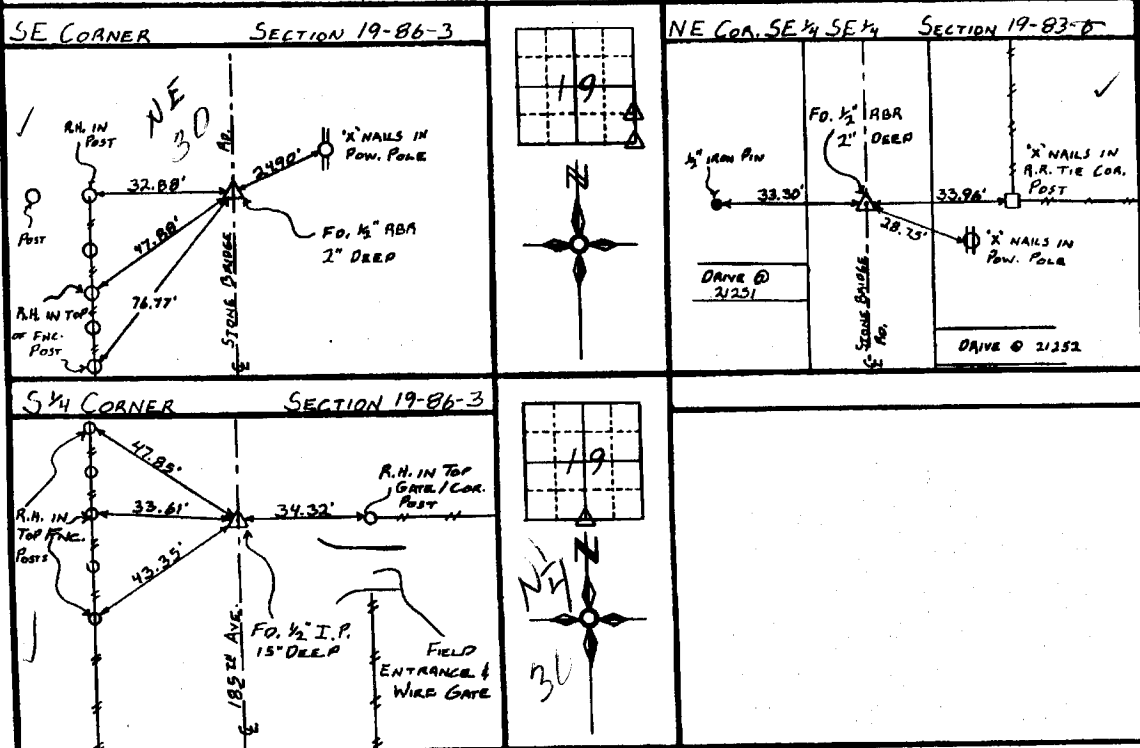 SE CORNER SECTION 19-86-3
NE
30
R.H. IN
POST
POST
32.88'
47.88'
76.77'
R.H. IN TOP
OF FNC.
POST
STONE BRIDGE RD.
℄
24.90'
"X" NAILS IN
POW. POLE
FD. 1/2" RBR
2" DEEP
19
N
NE COR. SE 1/4 SE 1/4 SECTION 19-83-
1/2" IRON PIN
33.30'
FD. 1/2" RBR
2" DEEP
33.96'
28.75'
"X" NAILS IN
R.R. TIE COR.
POST
"X" NAILS IN
POW. POLE
DRIVE @
21251
℄ STONE BRIDGE RD.
DRIVE @ 21252
S 1/4 CORNER SECTION 19-86-3
47.85'
33.61'
43.35'
R.H. IN
TOP FNC.
POSTS
34.32'
R.H. IN TOP
GATE/COR.
POST
FD. 1/2" I.P.
15" DEEP
185TH AVE.
℄
FIELD
ENTRANCE &
WIRE GATE
19
N
N 1/2
30